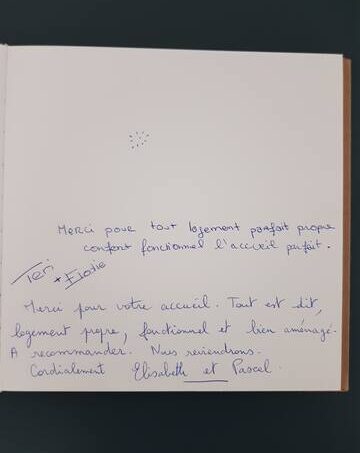 Merci pour tout logement parfait propre
confort fonctionnel l'accueil parfait.
Teri + Elodie
Merci pour votre accueil. Tout est dit,
logement propre, fonctionnel et bien aménagé.
A recommander. Nous reviendrons.
Cordialement Elisabeth et Pascal.